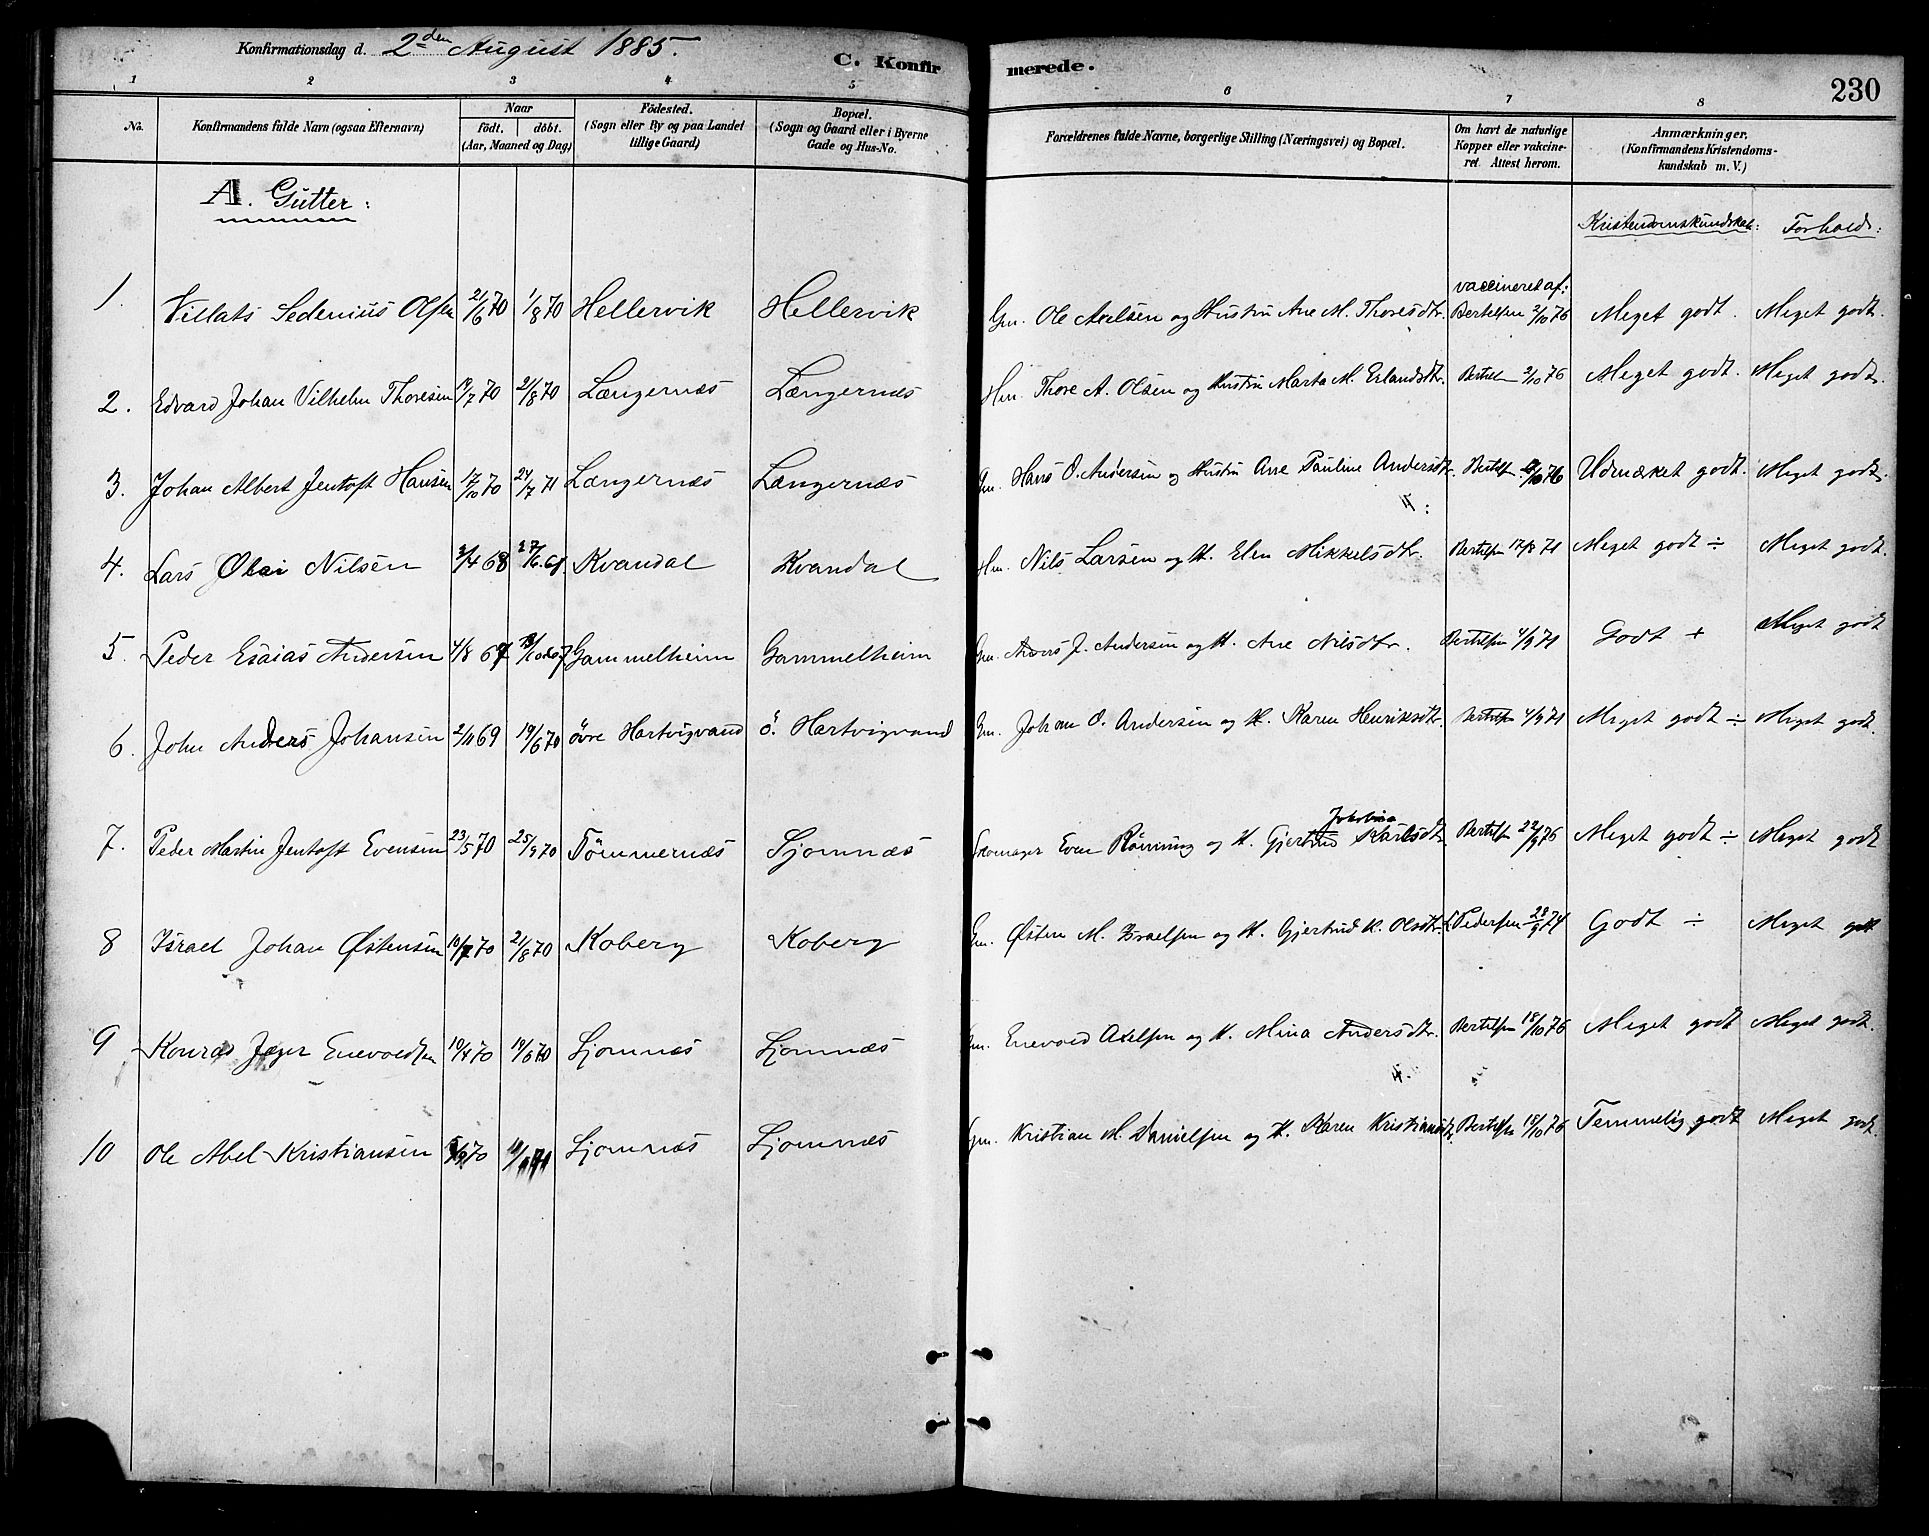 Konfirmationsdag d. 2den August 1885.
C. Konfirmerede.
230
1 2 3 4 5 6 7 8
No. Konfirmandens fulde Navn (ogsaa Efternavn) Naar födt. döbt. (Aar, Maaned og Dag) Födested. (Sogn eller By og paa Landet tillige Gaard) Bopæl. (Sogn og Gaard eller i Byerne Gade og Hus-No. Forældrenes fulde Navne, borgerlige Stilling (Næringsvei) og Bopæl. Om havt de naturlige Kopper eller vakcineret. Attest herom. Anmærkninger, (Konfirmandens Kristendomskundskab m. V.)
A. Gutter:
Kristendomskundskab: Forhold:
vaccineret af:
1. Villats Sedenius Olsen 2/6 70 1/8 70 Hellervik Hellervik Gm. Ole Axelsen og Hustru Ane M. Thoresdtr. Bertelsen 2/10 76 Meget godt. Meget godt.
2. Edvard Johan Vilhelm Thoresen 19/7 70 21/8 70 Længernæs Længernæs Hm. Thore A. Olsen og Hustru Marta M. Erlandsdtr. Bertelsen 2/10 76 Meget godt. Meget godt.
3. Johan Albert Jentoft Hansen 17/10 70 24/7 71 Længernæs Længernæs Gm. Hans O. Andersen og Hustru Ane Pauline Andersdtr. Bertelsen /10 76 Udmærket godt. Meget godt.
4. Lars Olai Nilsen 3/4 68 27/6 68 Kvandal Kvandal Hm. Nils Larsen og H. Elen Mikkelsdtr. Bertelsen 17/8 71 Meget godt ÷ Meget godt.
5. Peder Esaias Andersen 4/8 67 Gammelheim Gammelheim Gm. Anders J. Andersen og H. Ane Nilsdtr. Bertelsen 4/9 71 Godt + Meget godt
6. John Anders Johansen 2/11 69 19/6 70 övre Hartvigvand ö. Hartvigvand Gm. Johan O. Andersen og H. Karen Henriksdtr. Bertelsen 4/9 71 Meget godt ÷ Meget godt.
7. Peder Martin Jentoft Evensen 23/5 70 25/9 70 Tömmernæs Sjomnæs Skomager Even Rönning og H. Gjertrud Jakobina Karlsdtr. Bertelsen 22/9 76 Meget godt ÷ Meget godt
8 Israel Johan Østensen 10/7 70 21/8 70 Koberg Koberg Gm. Østen M. Israelsen og H. Gjertrud K. Olsdtr. Pedersen 28/9 74 Godt ÷ Meget godt
9 Konrad Jæger Enevoldsen 10/4 70 19/6 70 Ljomnæs Ljomnæs Gm. Enevold Axelsen og H. Mina Andersdtr. Bertelsen 18/10 76 Meget godt Meget godt.
10 Ole Abel Kristiansen 70 71 Ljomnæs Ljomnæs Gm. Kristian M. Danielsen og H. Karen Kristiansdtr. Bertelsen 18/10 76 Temmelig godt Meget godt.